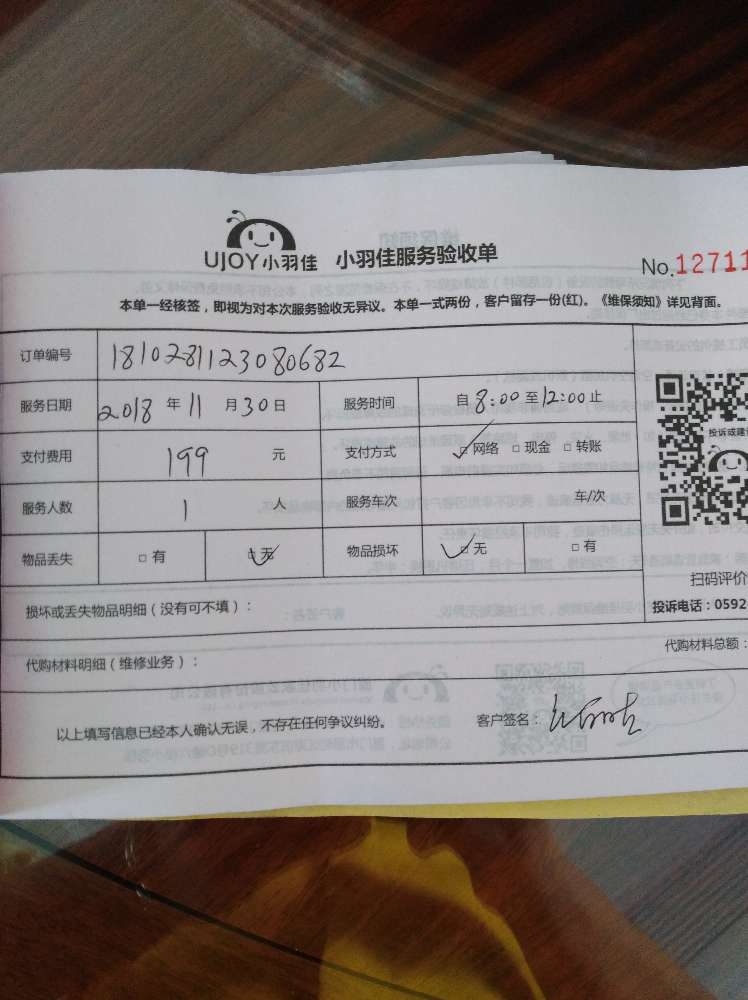 UJOY小羽佳 小羽佳服务验收单
No.12711
本单一经核签，即视为对本次服务验收无异议。本单一式两份，客户留存一份(红)。《维保须知》详见背面。
订单编号 1810281123080682
服务日期 2018 年 11 月 30 日 服务时间 自 8:00 至 12:00 止
支付费用 199 元 支付方式 网络 □ 现金 □ 转账
投诉或建议
服务人数 1 人 服务车次 车/次
物品丢失 □ 有 □ 无 物品损坏 □ 无 □ 有
扫码评价
损坏或丢失物品明细（没有可不填）：
投诉电话：0592
代购材料总额：
代购材料明细（维修业务）：
以上填写信息已经本人确认无误，不存在任何争议纠纷。 客户签名：